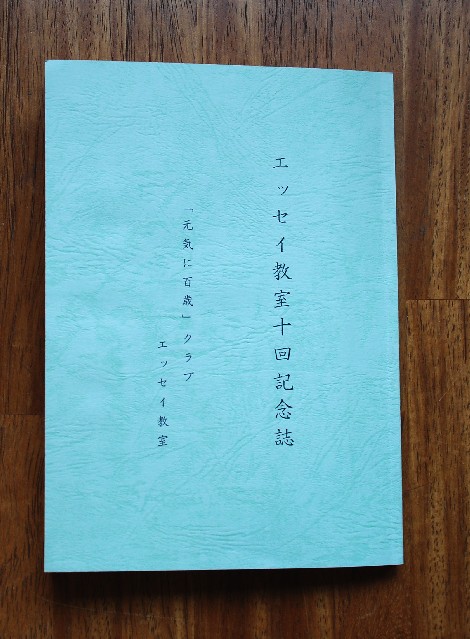 エッセイ教室十回記念誌
「元気に百歳」クラブ
エッセイ教室